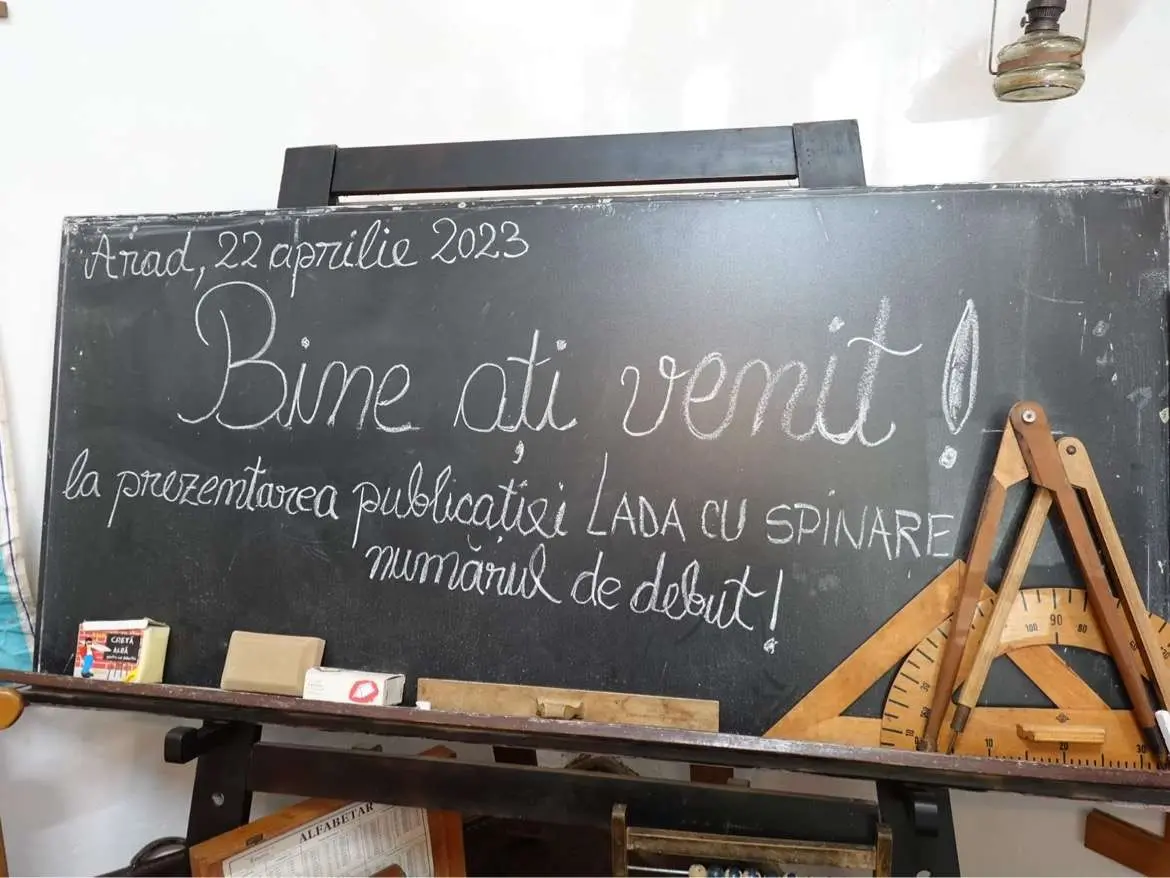 Arad, 22 aprilie 2023
Bine ați venit!
la prezentarea publicației LADA CU SPINARE
numărul de debut!
CRETĂ
ALBĂ
90
100
80
10
20
30
ALFABETAR